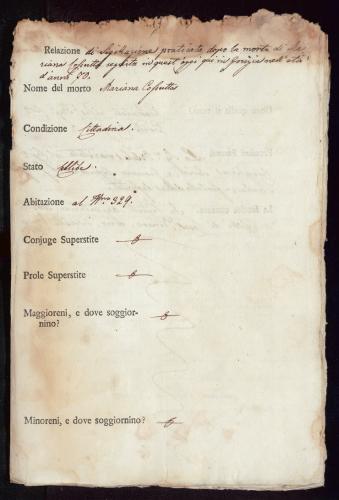 Relazione di Sigillazione praticata dopo la morte di Ma-
riana Cossutta seguita in quest'oggi qui in Gorizia nell'età
d'anni 70.
Nome del morto Mariana Cossutta
Condizione Cittadina.
Stato
Abitazione al Nro 329.
Conjuge Superstite
Prole Superstite
Maggioreni, e dove soggior-
nino?
Minoreni, e dove soggiornino?